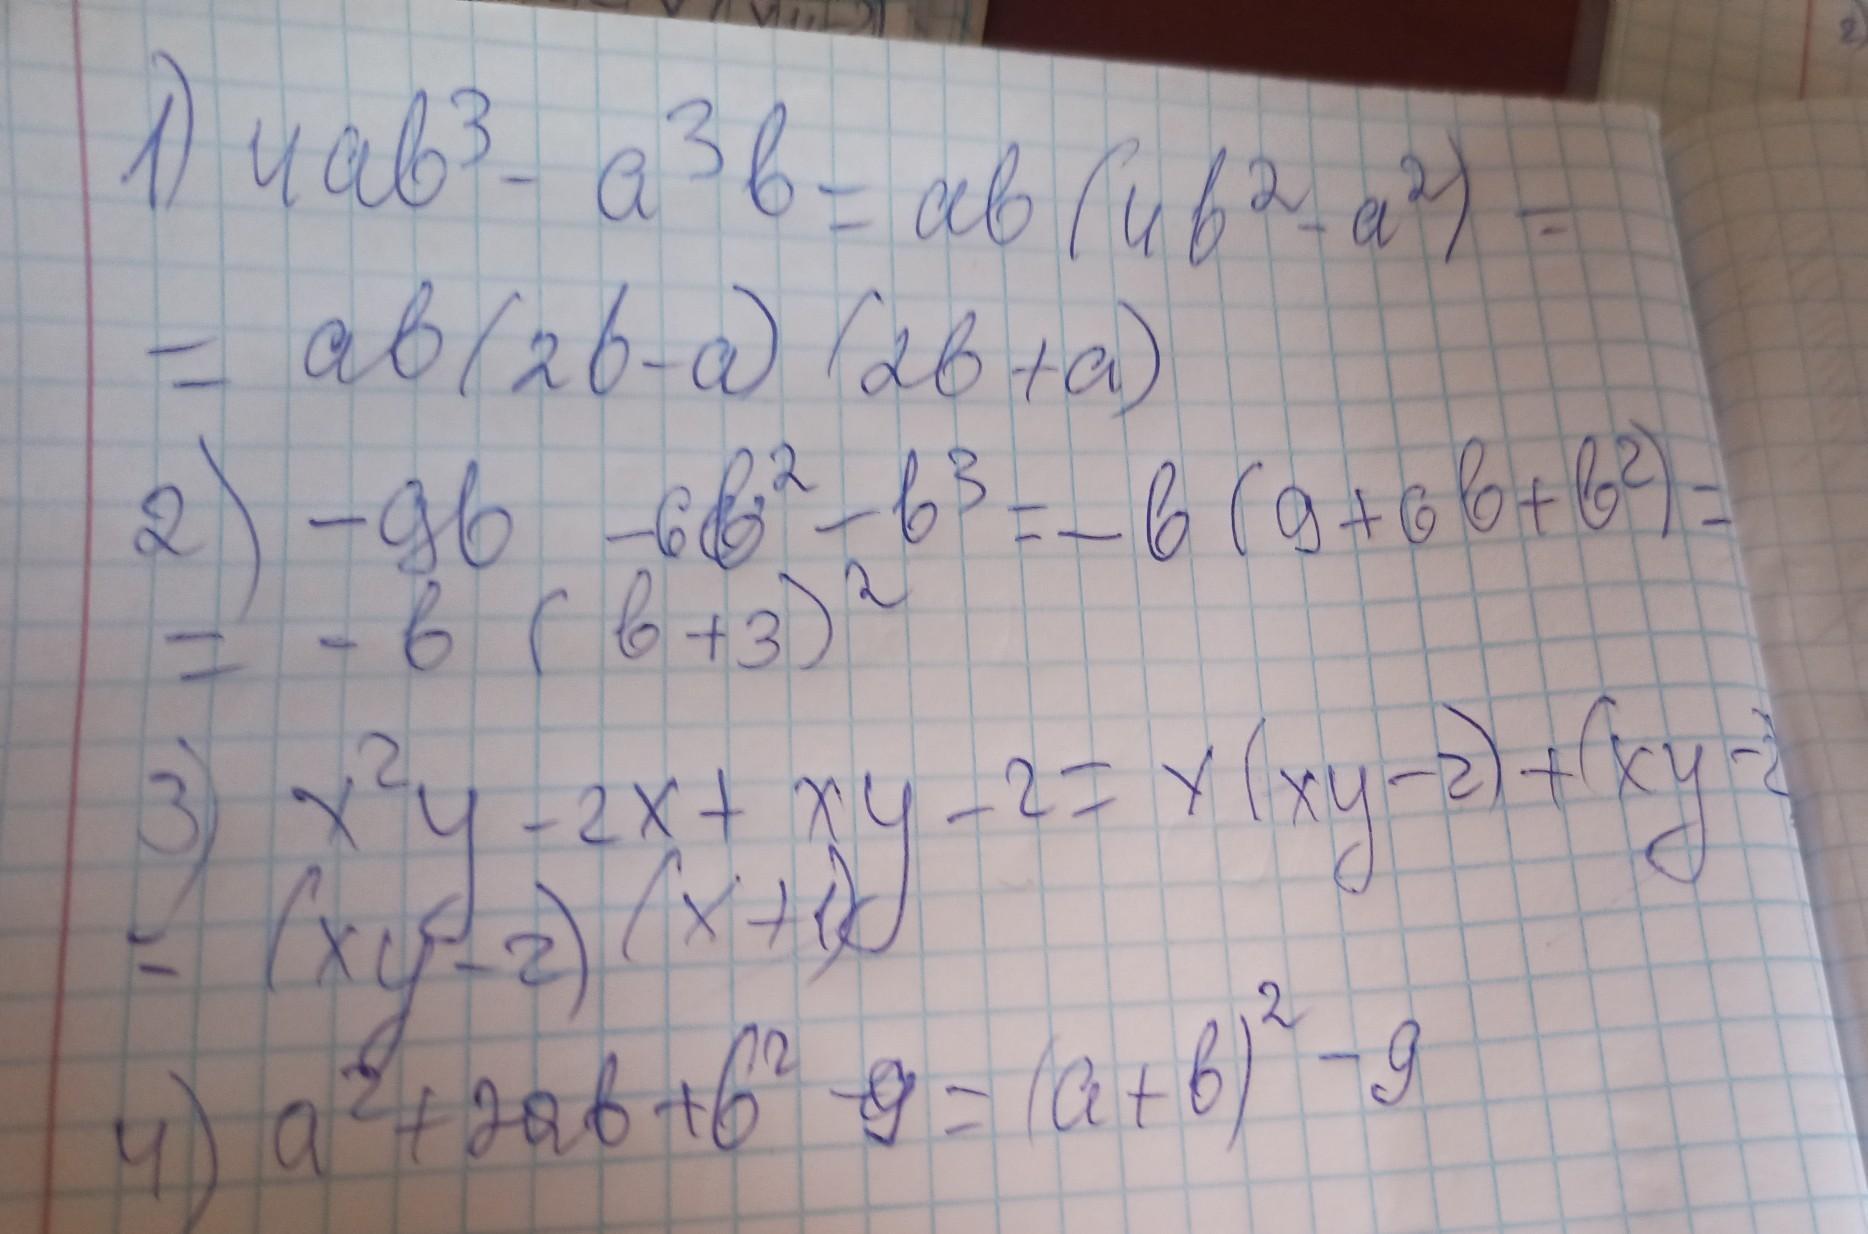 1) 4ab³ - a³b = ab(4b² - a²) =
= ab(2b - a)(2b + a)
2) -9b -6b² - b³ = -b(9 + 6b + b²) =
= -b(b + 3)²
3) x²y - 2x + xy - 2 = x(xy - 2) + (xy - 2
= (xy - 2)(x + 1)
4) a² + 2ab + b² - 9 = (a + b)² - 9